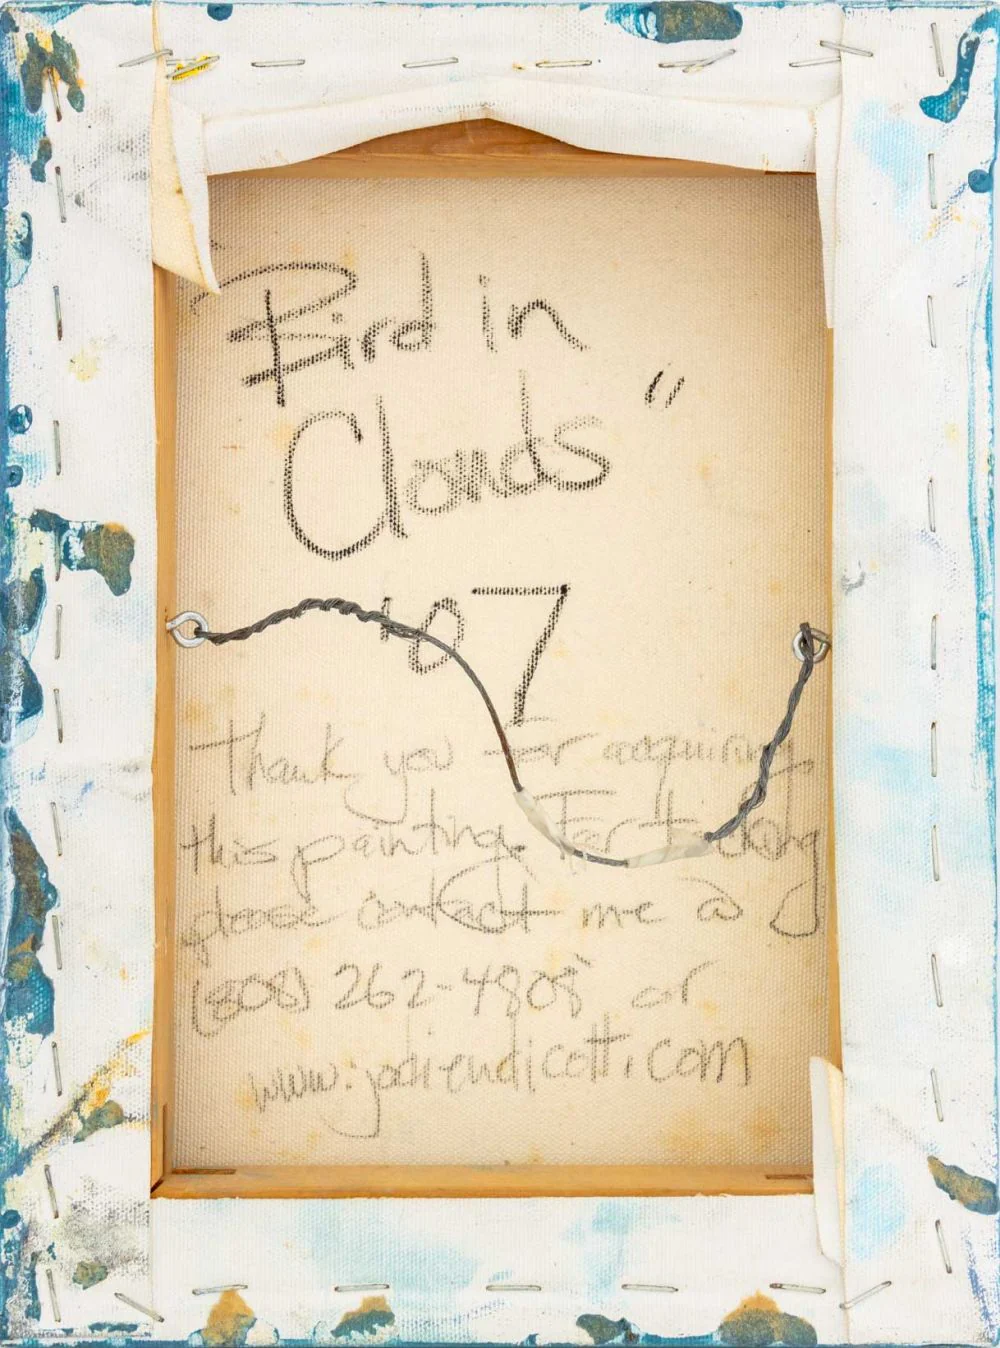 "Bird in
Clouds"
'07
Thank you for acquiring
this painting. For tracking
please contact me @
(808) 262-4808 or
www.jodiendicott.com